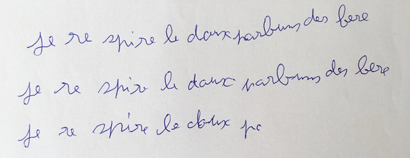 je re spire le doux parbums des bere
je re spire le doux parbums des bere
je re spire le doux pa